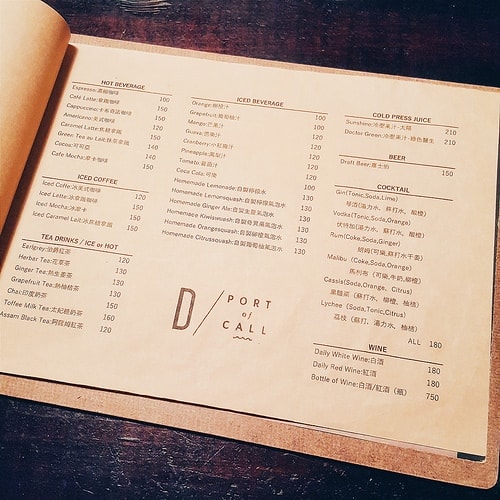 HOT BEVERAGE
Espresso:濃縮咖啡 100
Café Latte:拿鐵咖啡 120
Cappuccino:卡布奇諾咖啡 150
Americano:美式咖啡 120
Caramel Latte:焦糖拿鐵 150
Green Tea au Lait:抹茶拿鐵 140
Cocoa:可可亞 140
Cafe Mocha:摩卡咖啡 150
ICED COFFEE
Iced Coffe:冰美式咖啡 120
Iced Latte:冰拿鐵咖啡 130
Iced Mocha:冰摩卡 150
Iced Caramel Latte:冰焦糖拿鐵 150
TEA DRINKS / ICE or HOT
Earlgrey:伯爵紅茶 120
Herbar Tea:花草茶 130
Ginger Tea:熱生薑茶 130
Grapefruit Tea:熱柚桔茶 130
Chai:印度奶茶 150
Toffee Milk Tea:太妃糖奶茶 160
Assam Black Tea:阿薩姆紅茶 120
ICED BEVERAGE
Orange:柳橙汁 100
Grapefruit:葡萄柚汁 100
Mango:芒果汁 100
Guava:芭樂汁 120
Cranberry:小紅莓汁 120
Pineapple:鳳梨汁 120
Tomato:蕃茄汁 120
Coca Cola:可樂 100
Homemade Lemonade:自製檸檬水 120
Homemade Lemonsquash:自製檸檬氣泡水 130
Homemade Ginger Ale:自製生薑氣泡水 130
Homemade Kiwiswuash:自製奇異果氣泡水 130
Homemade Orangesquash:自製柳橙氣泡水 130
Homemade Citrussquash:自製葡萄柚氣泡水 130
D / PORT
of
CALL
COLD PRESS JUICE
Sunshine:冷壓果汁-太陽 210
Doctor Green:冷壓果汁-綠色醫生 210
BEER
Draft Beer:富士術 150
COCKTAIL
Gin(Tonic,Soda,Lime)
琴酒(湯力水、蘇打水、酸橙)
Vodka(Tonic,Soda,Orange)
伏特加(湯力水、蘇打水、酸橙)
Rum(Coke,Soda,Ginger)
朗姆(可樂,蘇打水干姜)
Malibu (Coke,Soda,Orange)
馬利布 (可樂,牛奶,柳橙)
Cassis(Soda,Orange, Citrus)
黑醋栗 (蘇打水、柳橙、柚桔)
Lychee (Soda,Tonic,Citrus)
荔枝 (蘇打、湯力水、柚桔)
ALL 180
WINE
Daily White Wine:白酒 180
Daily Red Wine:紅酒 180
Bottle of Wine:白酒/紅酒 (瓶) 750